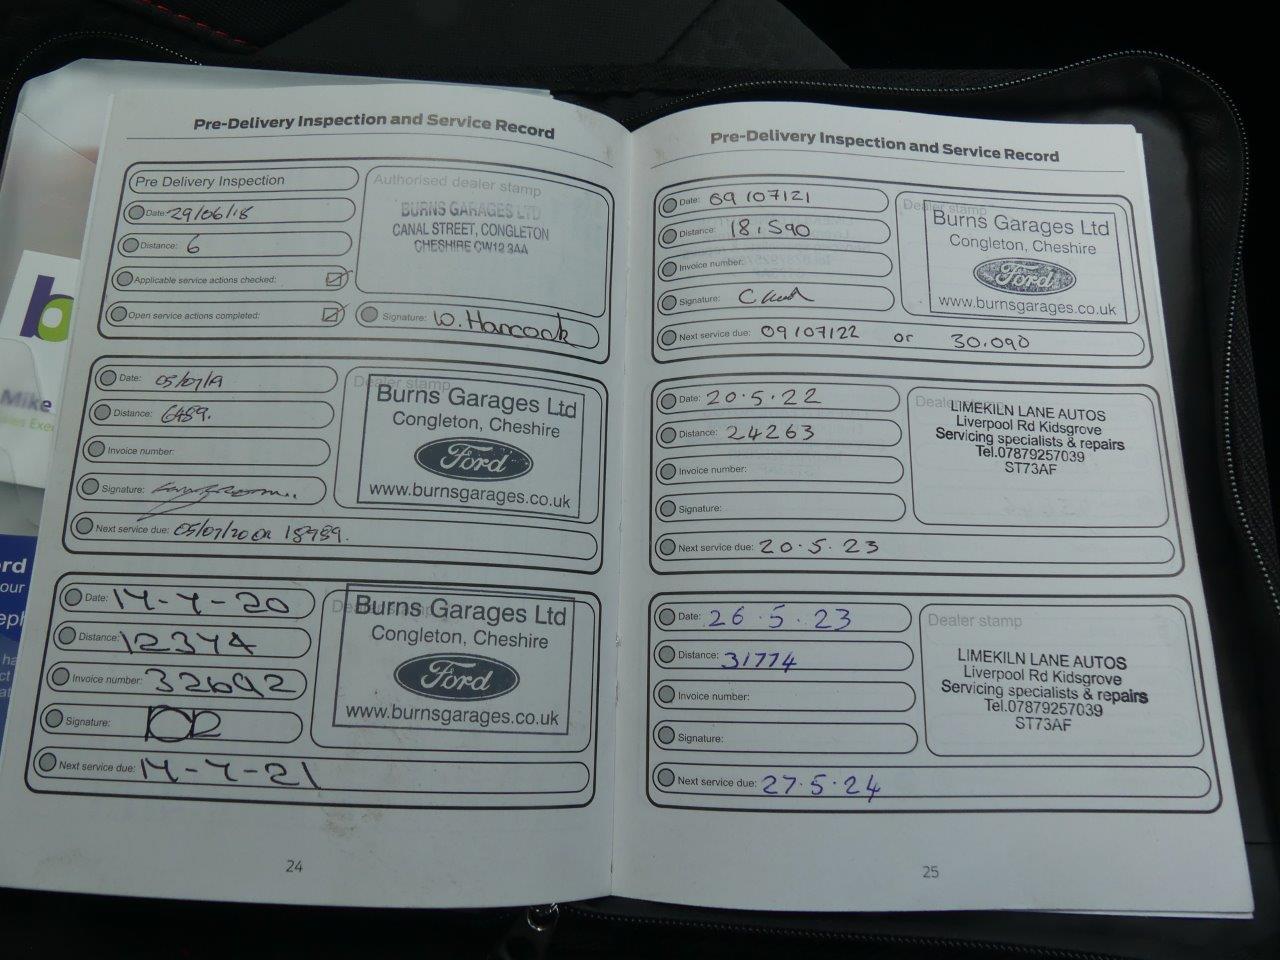 Pre-Delivery Inspection and Service Record
Pre Delivery Inspection
Date: 29/06/18
Distance: 6
Applicable service actions checked:
Open service actions completed:
Authorised dealer stamp
BURNS GARAGES LTD
CANAL STREET, CONGLETON
CHESHIRE CW12 3AA
Signature: W. Hancock
Date: 05/07/19
Distance: 6489.
Invoice number:
Signature:
Dealer stamp
Burns Garages Ltd
Congleton, Cheshire
Ford
www.burnsgarages.co.uk
Next service due: 05/07/20 OR 18989.
Date: 14-7-20
Distance: 12374
Invoice number: 32692
Signature:
Dealer stamp
Burns Garages Ltd
Congleton, Cheshire
Ford
www.burnsgarages.co.uk
Next service due: 14-7-21
24
Pre-Delivery Inspection and Service Record
Date: 09/07/21
Distance: 18.590
Invoice number:
Signature:
Dealer stamp
Burns Garages Ltd
Congleton, Cheshire
Ford
www.burnsgarages.co.uk
Next service due: 09/07/22 or 30.090
Date: 20.5.22
Distance: 24263
Invoice number:
Signature:
Dealer stamp
LIMEKILN LANE AUTOS
Liverpool Rd Kidsgrove
Servicing specialists & repairs
Tel.07879257039
ST73AF
Next service due: 20.5.23
Date: 26.5.23
Distance: 31774
Invoice number:
Signature:
Dealer stamp
LIMEKILN LANE AUTOS
Liverpool Rd Kidsgrove
Servicing specialists & repairs
Tel.07879257039
ST73AF
Next service due: 27.5.24
25
Mike